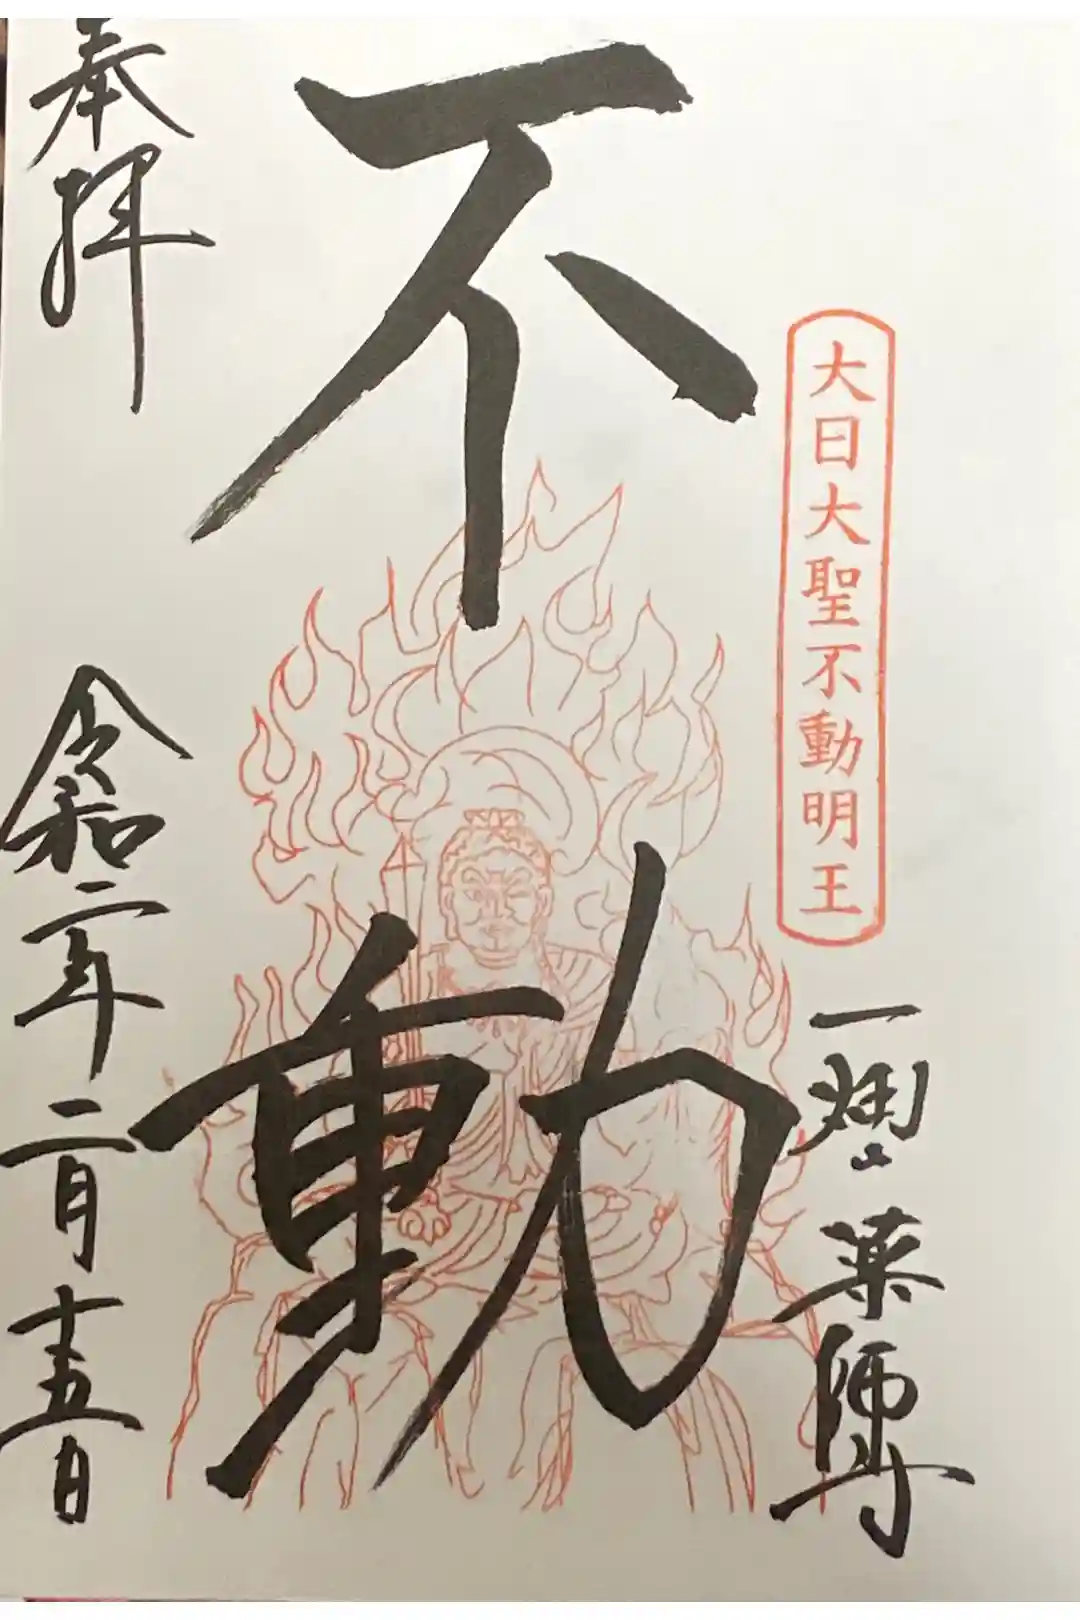 大日大聖不動明王
一畑山薬師寺
不動
奉拝
令和二年二月十五日